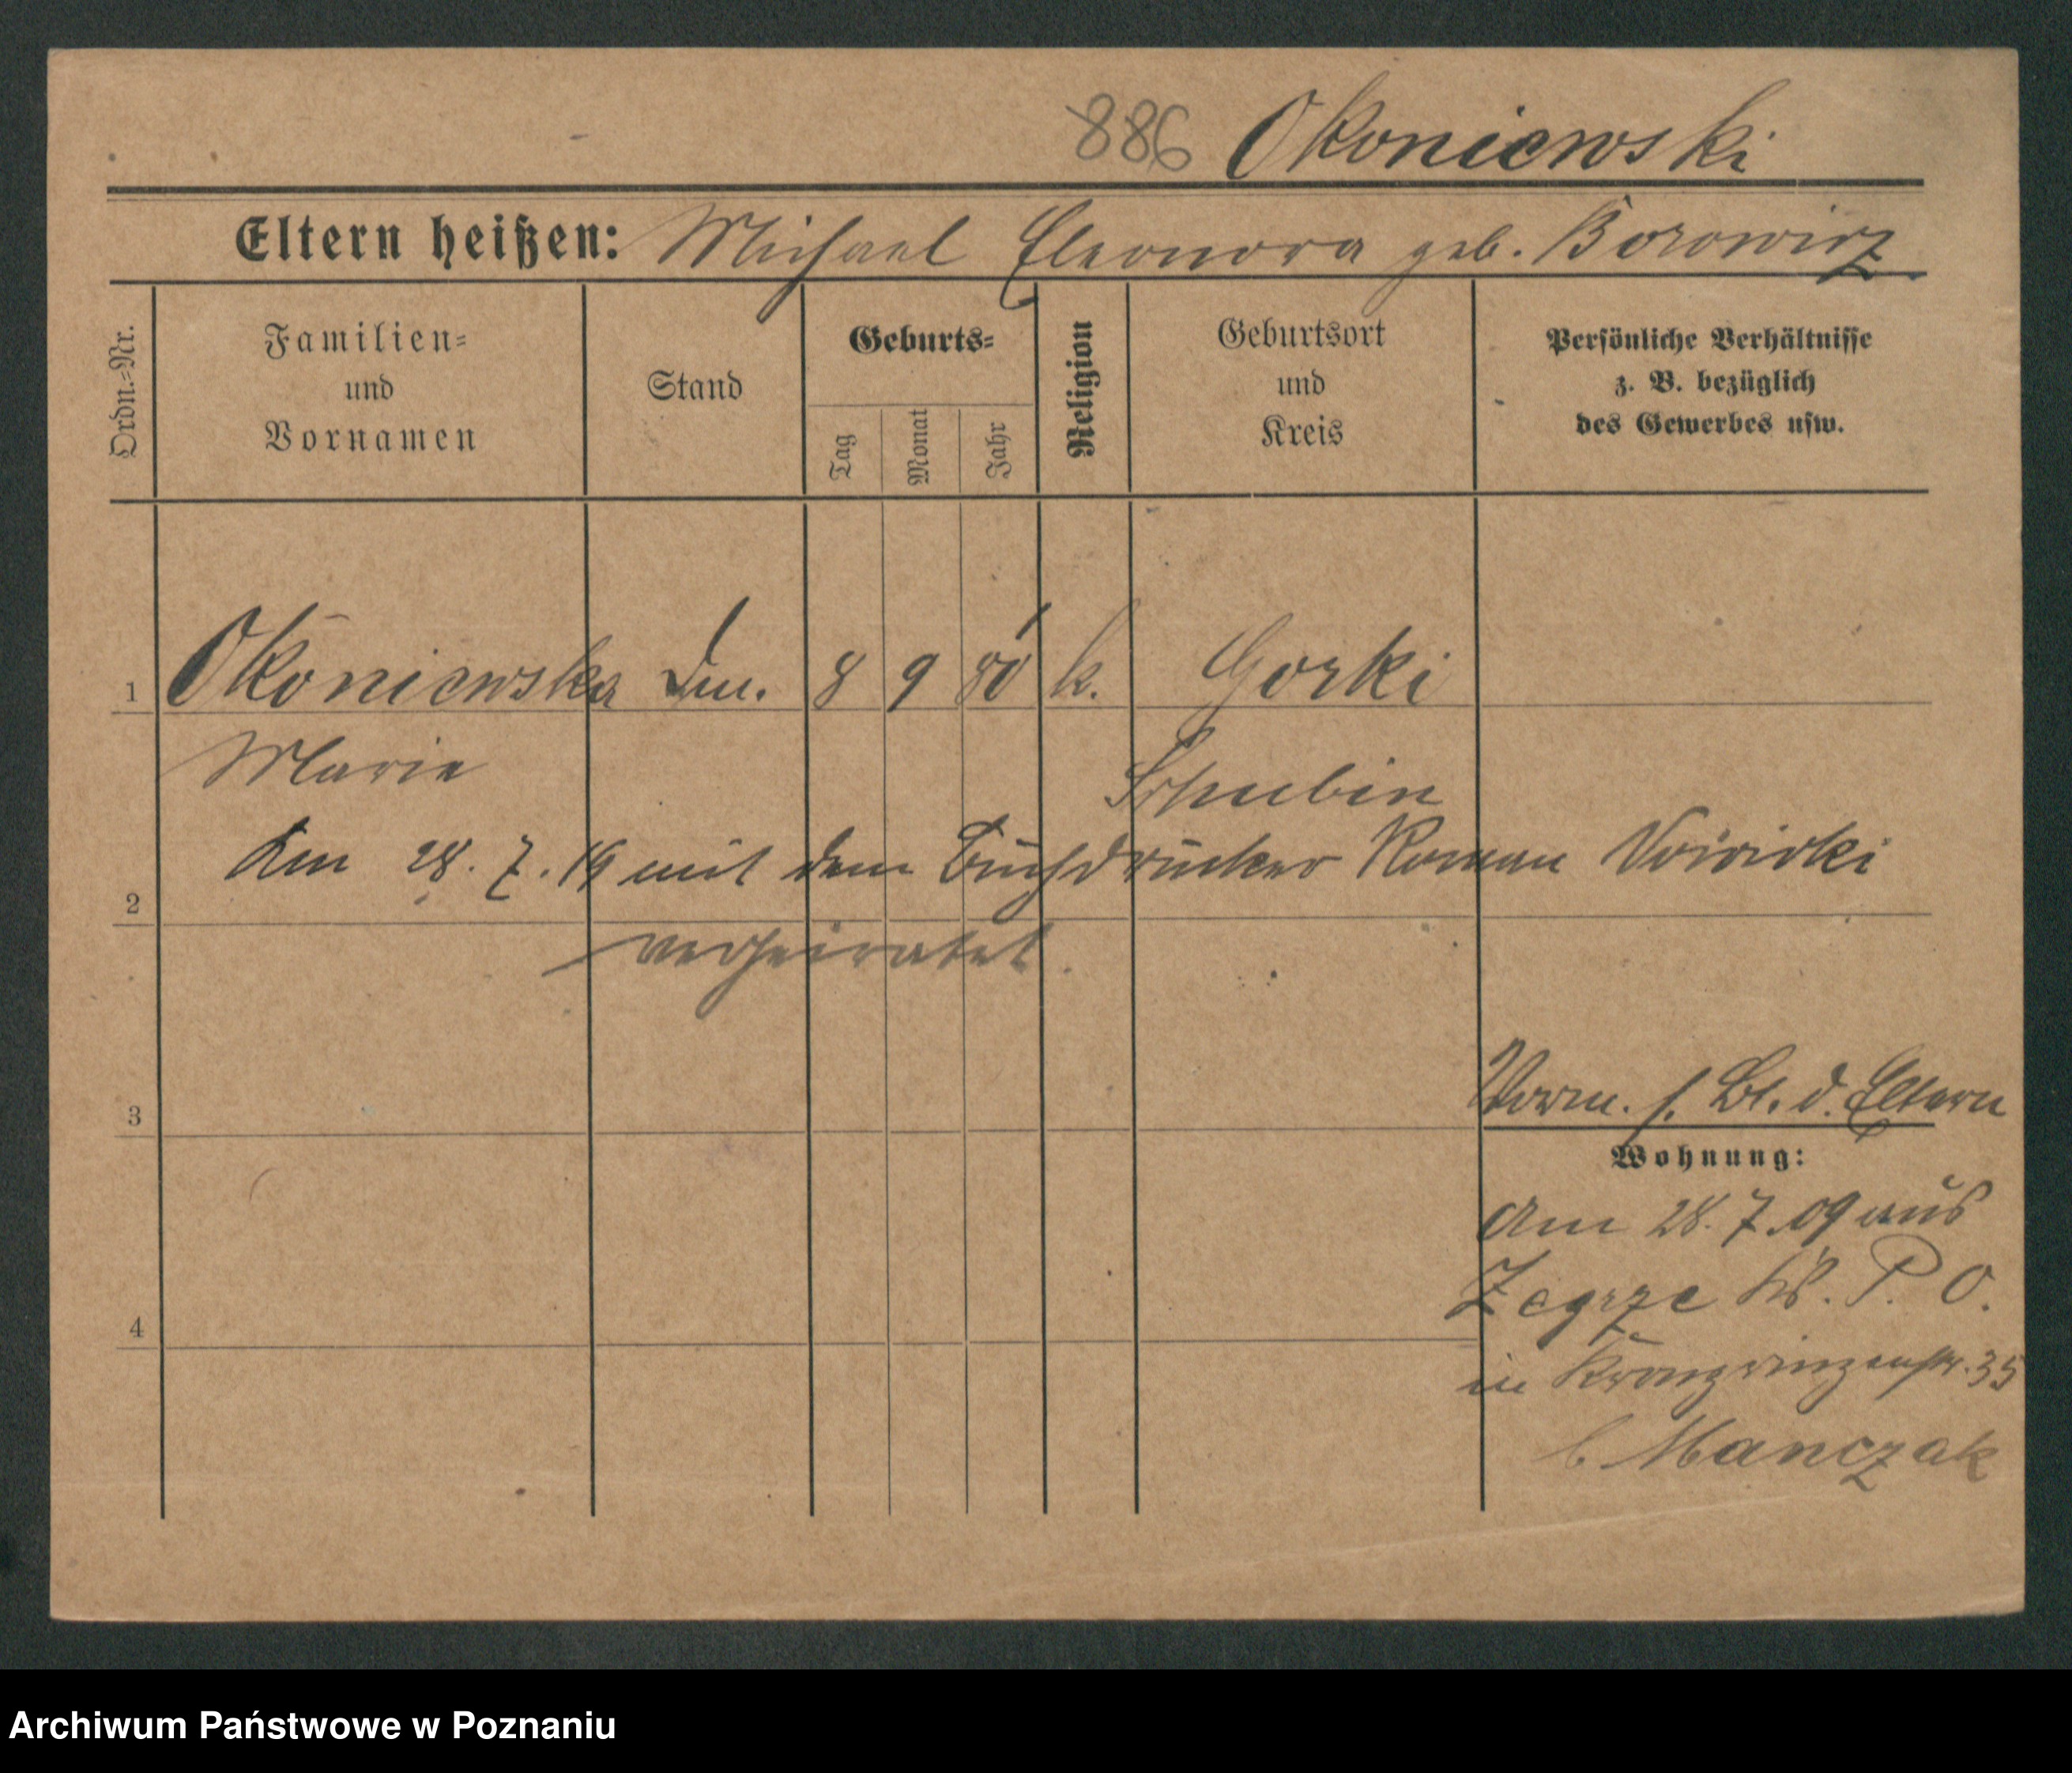 886 Okoniewski
Eltern heißen: Michael Eleonora geb. Borowicz
Ordn.=Nr.
Familien=
und
Vornamen
Stand
Geburts=
Tag
Monat
Jahr
Religion
Geburtsort
und
Kreis
Persönliche Verhältnisse
z. B. bezüglich
des Gewerbes usw.
1 Okoniewska 8 9 80 k. Gorki
Marie Schubin
2 Am 28. 7. 19 mit dem Buchdrucker Roman
verheiratet.
3 Vorm. s. Bl. d. Eltern
Wohnung:
Am 28. 7. 09 aus
4 Zegrze Kr. P. O.
in Kronprinzenstr. 35
b. Manczak
Archiwum Państwowe w Poznaniu